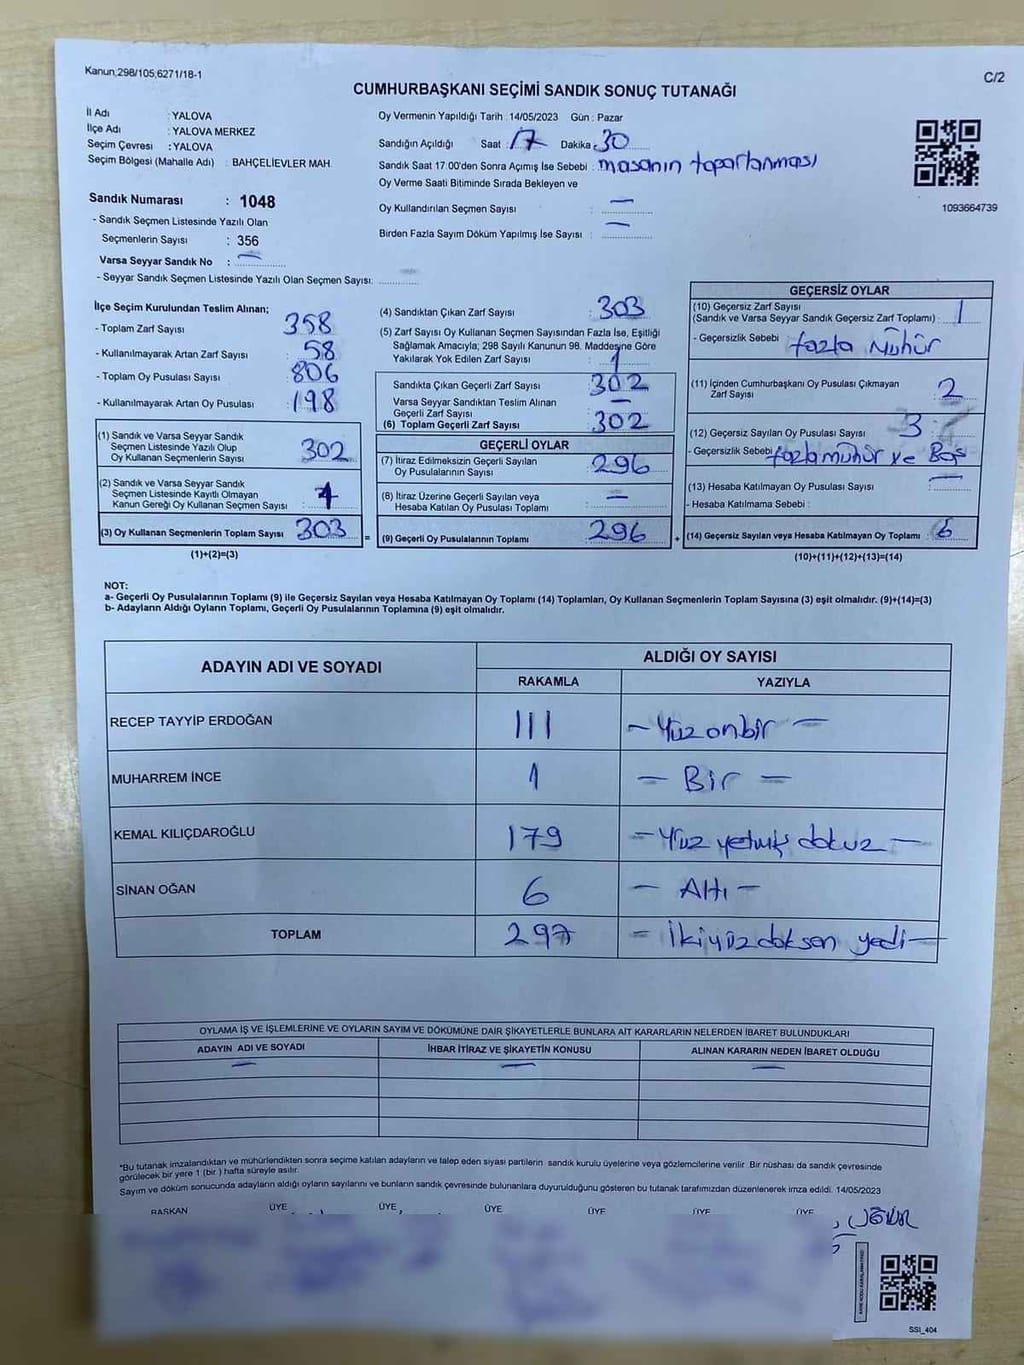 Kanun;298/105,6271/18-1
C/2
CUMHURBAŞKANI SEÇİMİ SANDIK SONUÇ TUTANAĞI
İl Adı : YALOVA
İlçe Adı : YALOVA MERKEZ
Seçim Çevresi : YALOVA
Seçim Bölgesi (Mahalle Adı) : BAHÇELİEVLER MAH.
Oy Vermenin Yapıldığı Tarih : 14/05/2023 Gün : Pazar
Sandığın Açıldığı Saat : 17 Dakika : 30
Sandık Saat 17.00'den Sonra Açımış İse Sebebi : masanın toparlanması
Oy Verme Saati Bitiminde Sırada Bekleyen ve
Oy Kullandırılan Seçmen Sayısı : —
Birden Fazla Sayım Döküm Yapılmış İse Sayısı : —
1093664739
Sandık Numarası : 1048
- Sandık Seçmen Listesinde Yazılı Olan
Seçmenlerin Sayısı : 356
Varsa Seyyar Sandık No : —
- Seyyar Sandık Seçmen Listesinde Yazılı Olan Seçmen Sayısı: —
İlçe Seçim Kurulundan Teslim Alınan;
- Toplam Zarf Sayısı : 358
- Kullanılmayarak Artan Zarf Sayısı : 58
- Toplam Oy Pusulası Sayısı : 806
- Kullanılmayarak Artan Oy Pusulası : 198
(1) Sandık ve Varsa Seyyar Sandık
Seçmen Listesinde Yazılı Olup
Oy Kullanan Seçmenlerin Sayısı : 302
(2) Sandık ve Varsa Seyyar Sandık
Seçmen Listesinde Kayıtlı Olmayan
Kanun Gereği Oy Kullanan Seçmen Sayısı : 1
(3) Oy Kullanan Seçmenlerin Toplam Sayısı : 303
(1)+(2)=(3)
(4) Sandıktan Çıkan Zarf Sayısı : 303
(5) Zarf Sayısı Oy Kullanan Seçmen Sayısından Fazla İse, Eşitliği
Sağlamak Amacıyla; 298 Sayılı Kanunun 98. Maddesine Göre
Yakılarak Yok Edilen Zarf Sayısı : 1
Sandıkta Çıkan Geçerli Zarf Sayısı : 302
Varsa Seyyar Sandıktan Teslim Alınan
Geçerli Zarf Sayısı : —
(6) Toplam Geçerli Zarf Sayısı : 302
GEÇERLİ OYLAR
(7) İtiraz Edilmeksizin Geçerli Sayılan
Oy Pusulalarının Sayısı : 296
(8) İtiraz Üzerine Geçerli Sayılan veya
Hesaba Katılan Oy Pusulası Toplamı : —
=
(9) Geçerli Oy Pusulalarının Toplamı : 296
+
GEÇERSİZ OYLAR
(10) Geçersiz Zarf Sayısı
(Sandık ve Varsa Seyyar Sandık Geçersiz Zarf Toplamı) : 1
- Geçersizlik Sebebi : fazla Mühür
(11) İçinden Cumhurbaşkanı Oy Pusulası Çıkmayan
Zarf Sayısı : 2
(12) Geçersiz Sayılan Oy Pusulası Sayısı : 3
- Geçersizlik Sebebi : fazla mühür ve Boş
(13) Hesaba Katılmayan Oy Pusulası Sayısı : —
- Hesaba Katılmama Sebebi :
(14) Geçersiz Sayılan veya Hesaba Katılmayan Oy Toplamı : 6
(10)+(11)+(12)+(13)=(14)
NOT:
a- Geçerli Oy Pusulalarının Toplamı (9) ile Geçersiz Sayılan veya Hesaba Katılmayan Oy Toplamı (14) Toplamları, Oy Kullanan Seçmenlerin Toplam Sayısına (3) eşit olmalıdır. (9)+(14)=(3)
b- Adayların Aldığı Oyların Toplamı, Geçerli Oy Pusulalarının Toplamına (9) eşit olmalıdır.
ADAYIN ADI VE SOYADI
ALDIĞI OY SAYISI
RAKAMLA YAZIYLA
RECEP TAYYİP ERDOĞAN 111 – Yüz onbir –
MUHARREM İNCE 1 – Bir –
KEMAL KILIÇDAROĞLU 179 – Yüz yetmiş dokuz –
SİNAN OĞAN 6 – Altı –
TOPLAM 297 – İkiyüz doksen yedi –
OYLAMA İŞ VE İŞLEMLERİNE VE OYLARIN SAYIM VE DÖKÜMÜNE DAİR ŞİKAYETLERLE BUNLARA AİT KARARLARIN NELERDEN İBARET BULUNDUKLARI
ADAYIN ADI VE SOYADI İHBAR İTİRAZ VE ŞİKAYETİN KONUSU ALINAN KARARIN NEDEN İBARET OLDUĞU
— — —
*Bu tutanak imzalandıktan ve mühürlendikten sonra seçime katılan adayların ve talep eden siyasi partilerin sandık kurulu üyelerine veya gözlemcilerine verilir. Bir nüshası da sandık çevresinde
görülecek bir yere 1 (bir ) hafta süreyle asılır.
Sayım ve döküm sonucunda adayların aldığı oyların sayılarını ve bunların sandık çevresinde bulunanlara duyurulduğunu gösteren bu tutanak tarafımızdan düzenlenerek imza edildi. 14/05/2023
BAŞKAN ÜYE ÜYE ÜYE ÜYE ÜYE ÜYE
SSI_404